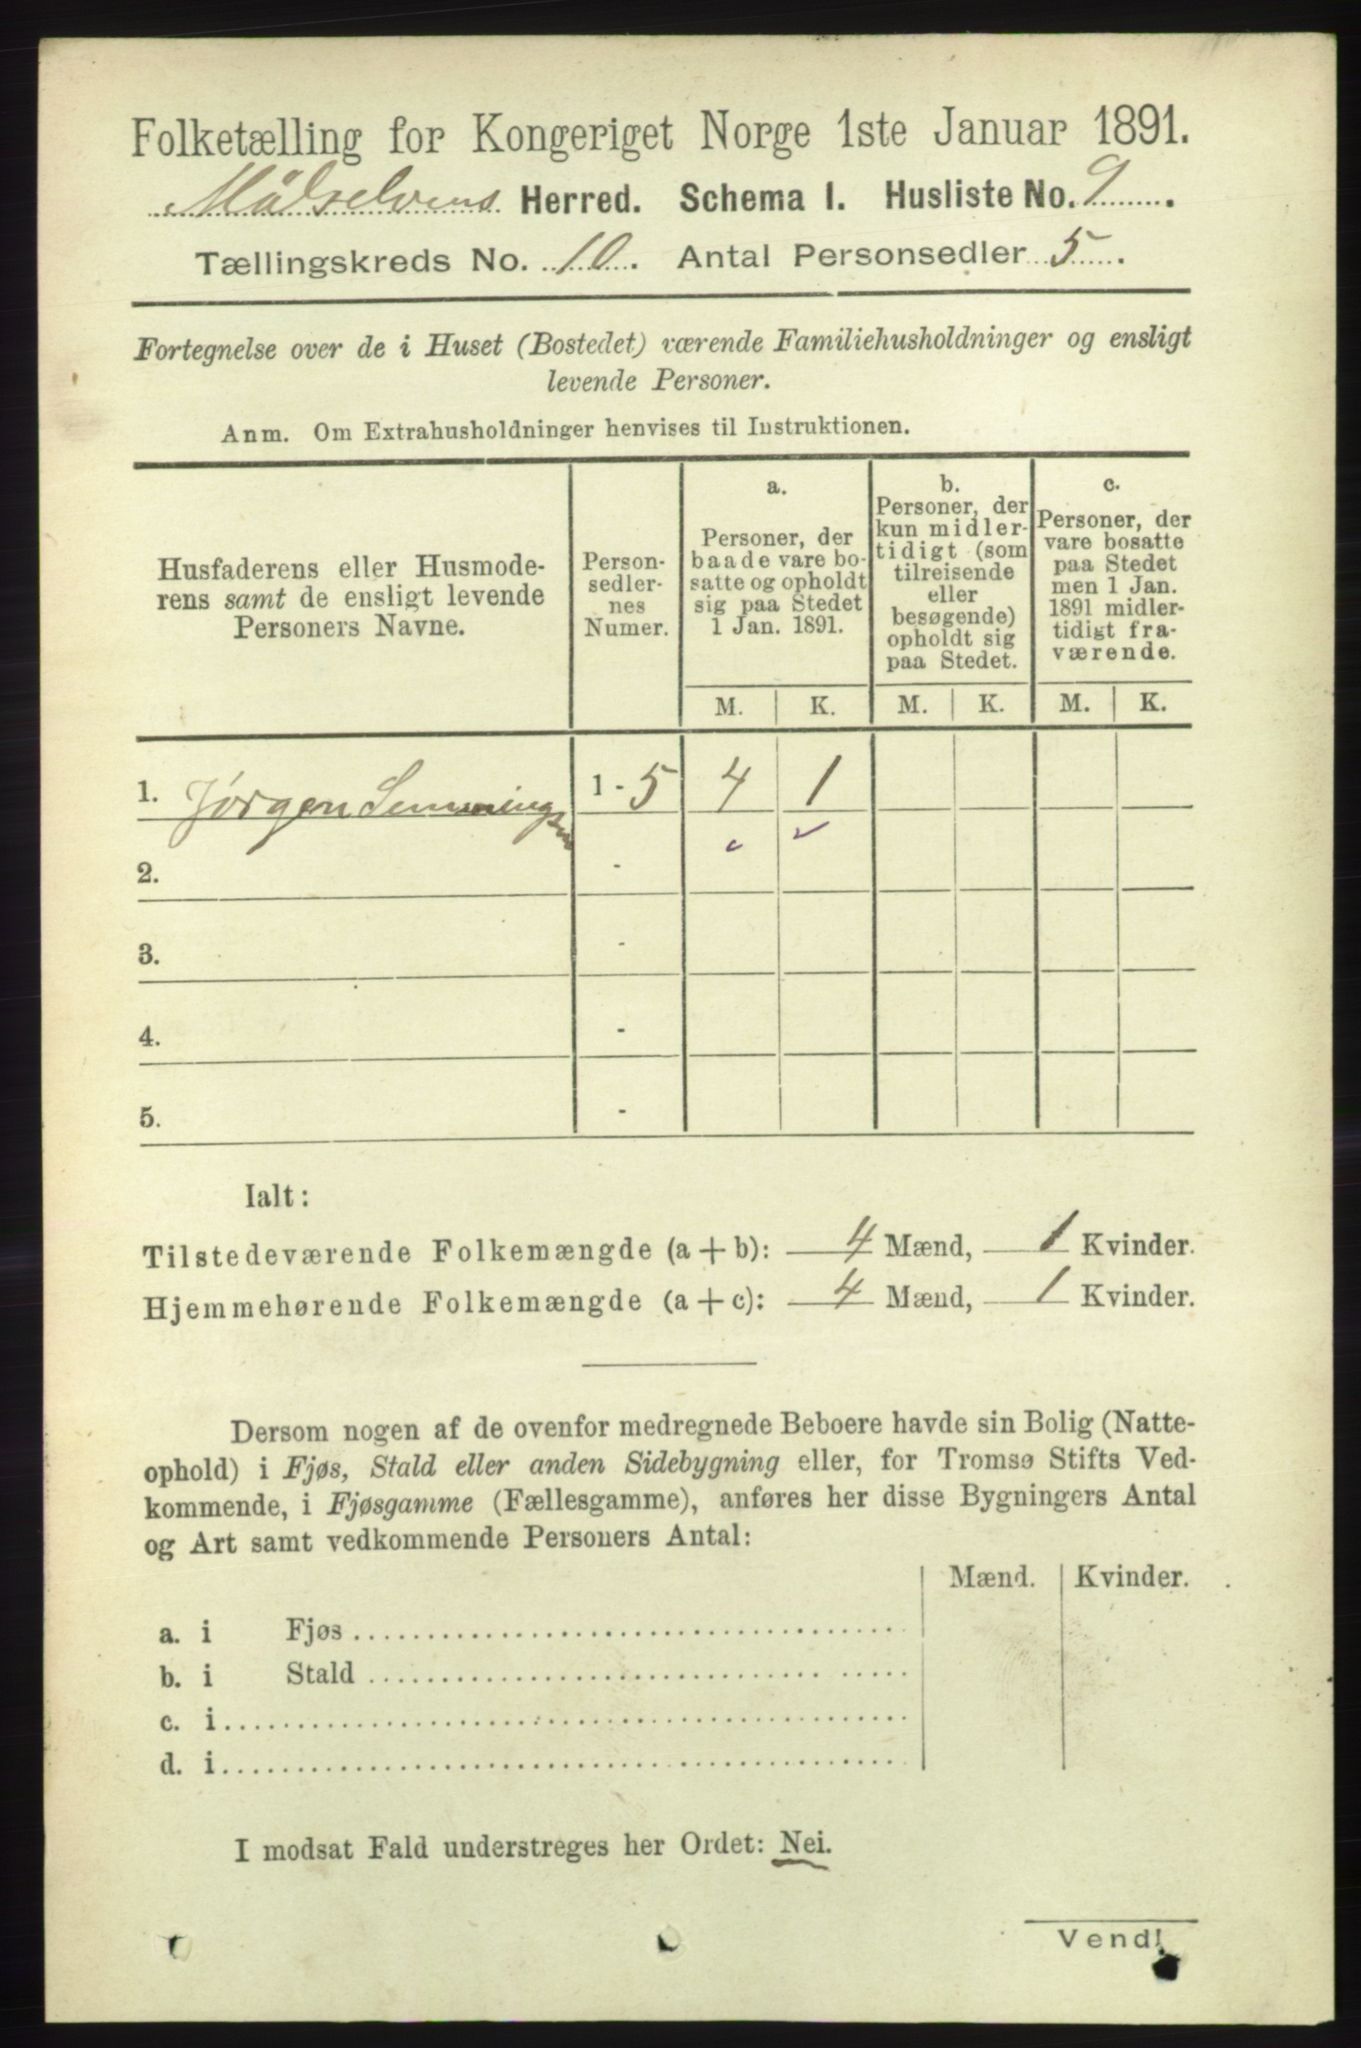 Folketælling for Kongeriget Norge 1ste Januar 1891.
Målselvens Herred. Schema I. Husliste No. 9.
Tællingskreds No. 10. Antal Personsedler 5.
Fortegnelse over de i Huset (Bostedet) værende Familiehusholdninger og ensligt
levende Personer.
Anm. Om Extrahusholdninger henvises til Instruktionen.
Husfaderens eller Husmode-
rens samt de ensligt levende
Personers Navne.
Person-
sedler-
nes
Numer.
a.
Personer, der
baade vare bo-
satte og opholdt
sig paa Stedet
1 Jan. 1891.
b.
Personer, der
kun midler-
tidigt (som
tilreisende
eller
besøgende)
opholdt sig
paa Stedet.
c.
Personer, der
vare bosatte
paa Stedet
men 1 Jan.
1891 midler-
tidigt fra-
værende.
M. K. M. K. M. K.
1. Jørgen Semmingsen 1 - 5 4 1
2. -
3. -
4. -
5. -
Ialt:
Tilstedeværende Folkemængde (a + b): 4 Mænd, 1 Kvinder.
Hjemmehørende Folkemængde (a + c): 4 Mænd, 1 Kvinder.
Dersom nogen af de ovenfor medregnede Beboere havde sin Bolig (Natte-
ophold) i Fjøs, Stald eller anden Sidebygning eller, for Tromsø Stifts Ved-
kommende, i Fjøsgamme (Fællesgamme), anføres her disse Bygningers Antal
og Art samt vedkommende Personers Antal:
Mænd. Kvinder.
a. i Fjøs
b. i Stald
c. i
d. i
I modsat Fald understreges her Ordet: Nei.
Vend!